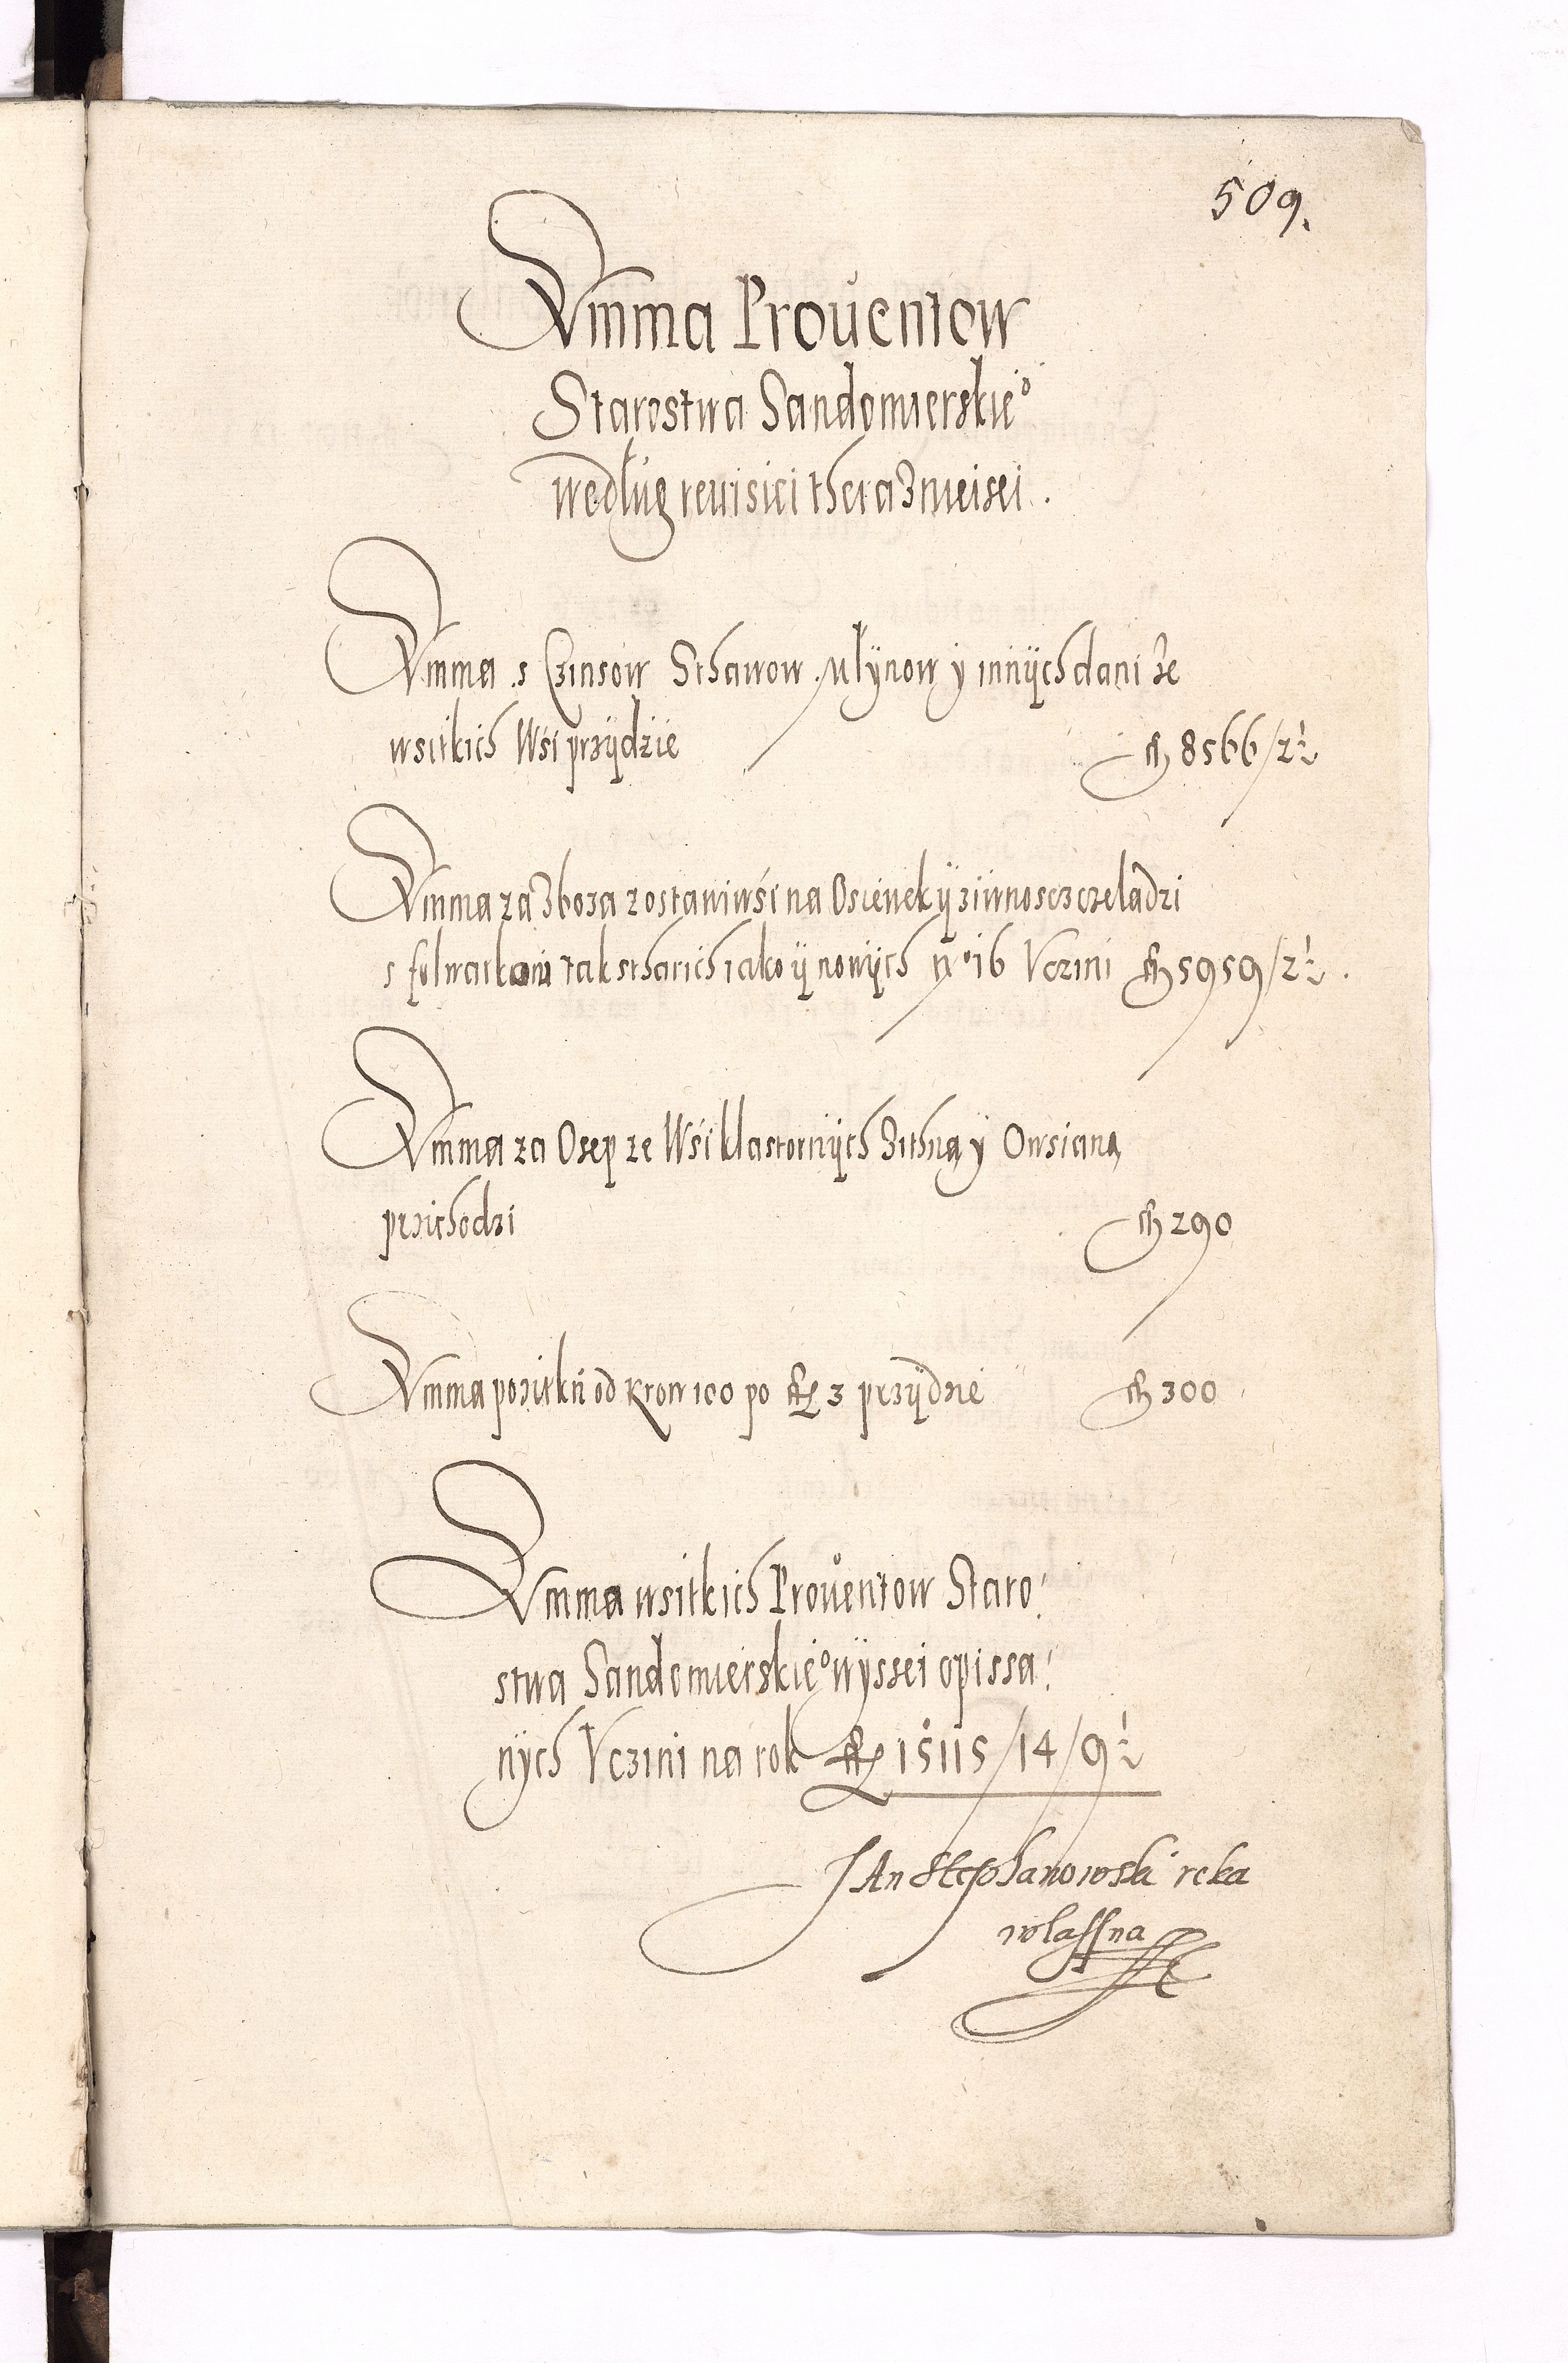 509.
Summa Prouentow
Starostwa Sandomierskie°
według reuisiei theraznieisei.
Summa s Czinsow Sthawow Młynow y innych dani ze
wsitkich Wsi przydzie fl 8566/2½
Summa za Zboza zostawiwsi na Osiewek y ziwnoscz czeladzi
s folwarkow tak stharich iako y nowych n° 16 Vczini fl 5959/2½.
Summa za Osep ze Wsi klastornych Zithną y Owsianą
przichodzi fl 290
Summa pozitku od Krow 100 po fl 3 przydzie fl 300
Summa wsitkich Prouentow Staro:
stwa Sandomierskie° wyssei opissa:
nych Vczini na rok fl 15115/14/9½
JAn Stephanowski reka
wlassna